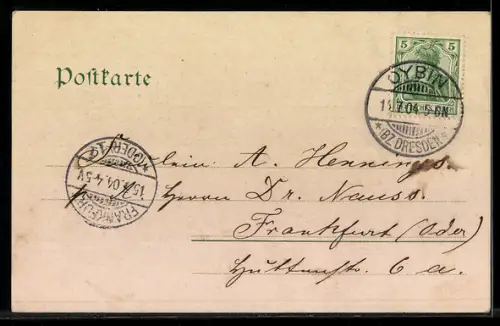 Postkarte
5 5
OYBIN
14.7.04. 5-6N.
*(BZ. DRESDEN)*
FRANKFURT (ODER)
15.7.04. 4-5V
Fräulein A. Henninges
Herrn Dr. Nauss
Frankfurt (Oder)
Huttenstr. 6 a.